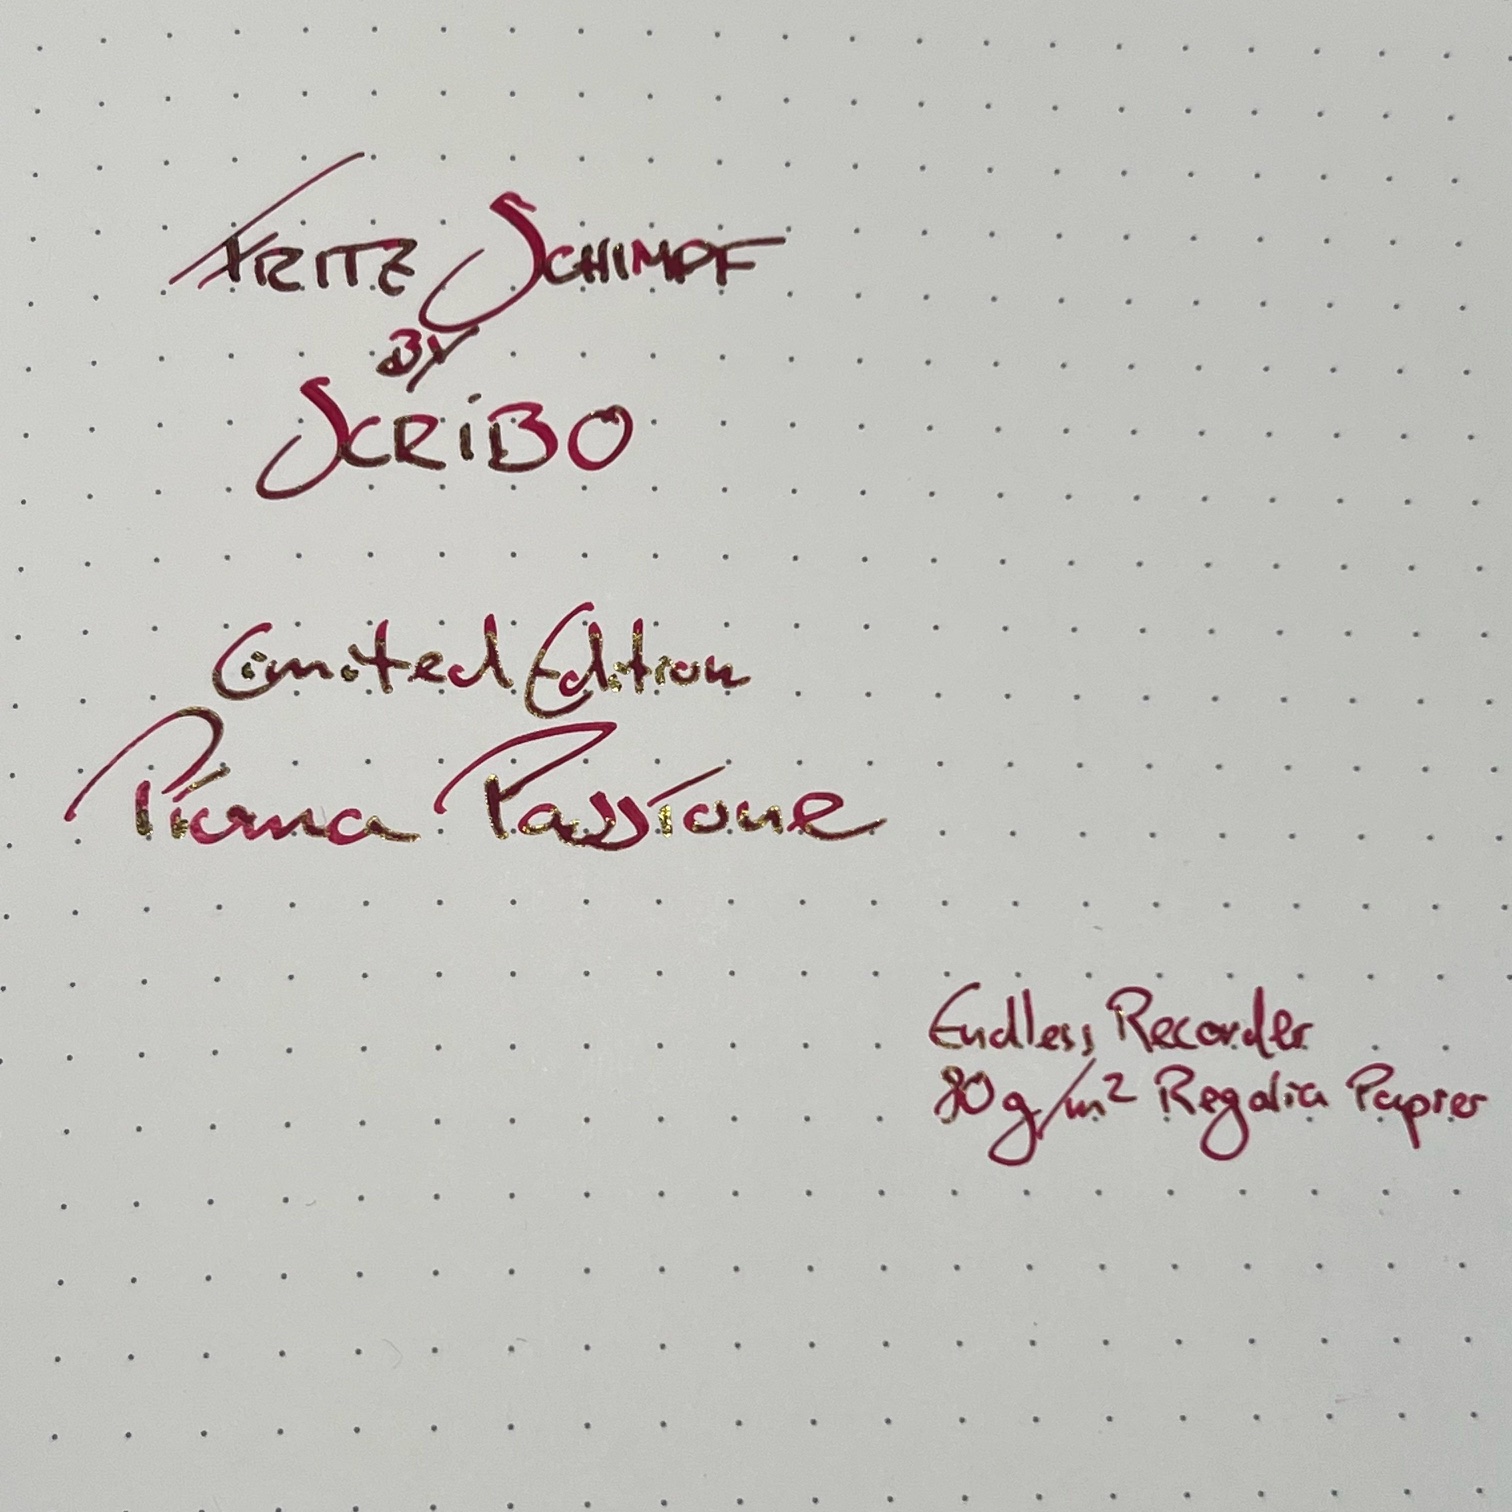 FRITZ SCHIMPF
BY
SCRIBO
Limited Edition
Piuma Passione
Endless Recorder
80g/m² Regalia Papier